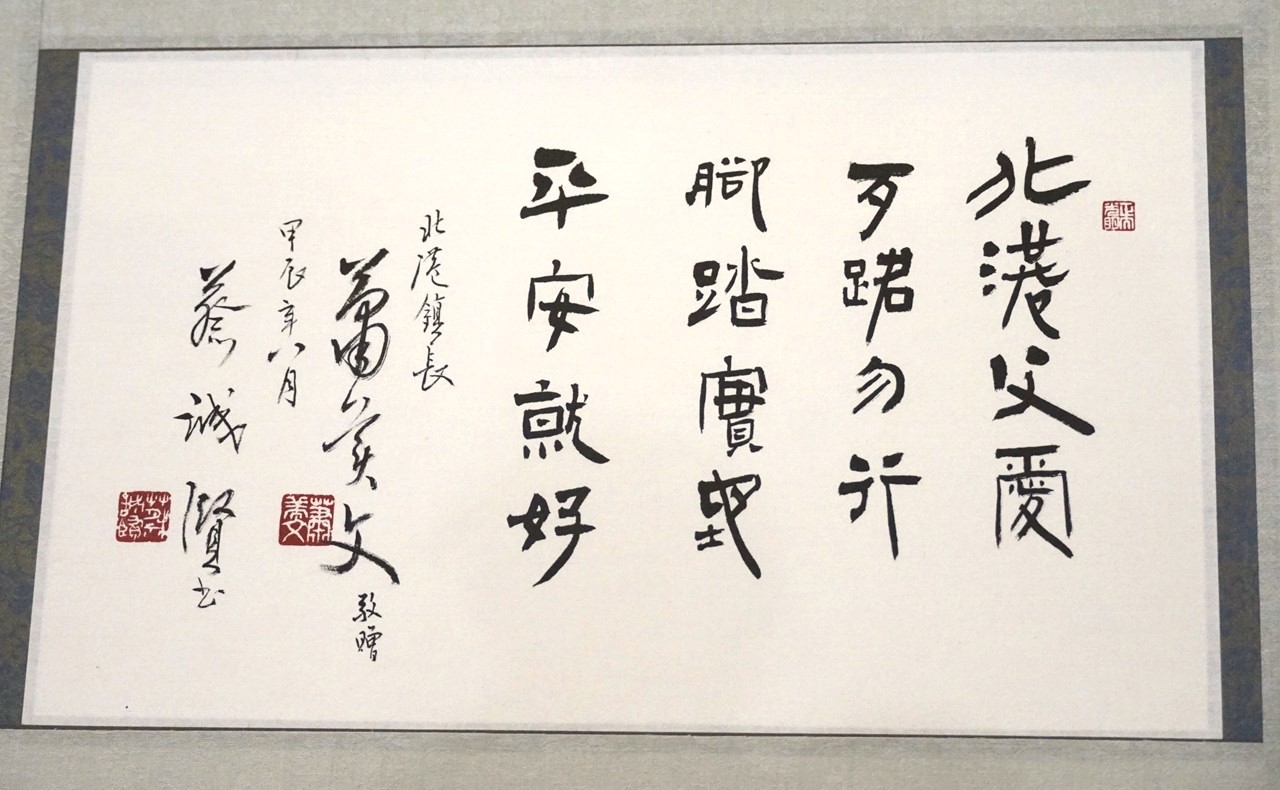 北港父愛
歹路勿行
腳踏實地
平安就好
北港鎮長
蕭美文 敬贈
甲辰年八月
蔡誠賢書